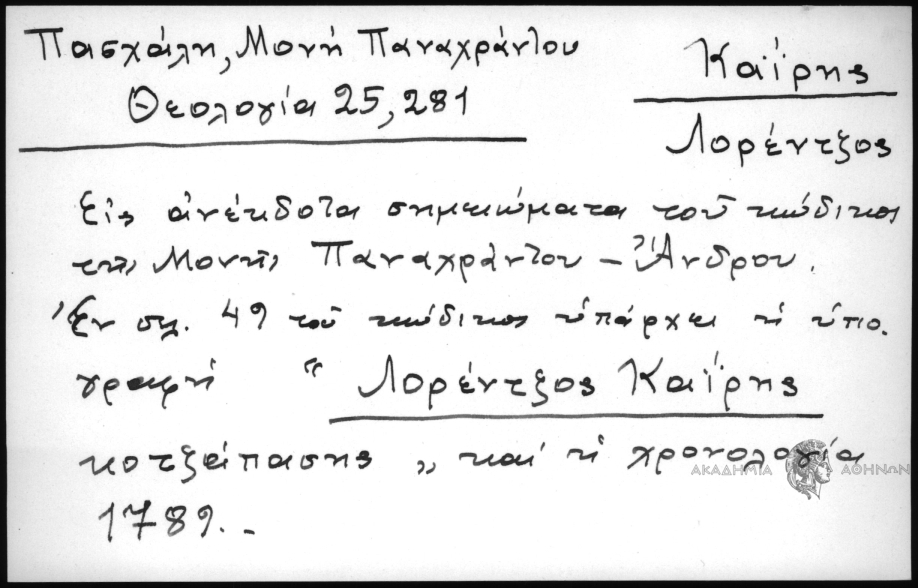 Πασχάλη, Μονή Παναχράντου
Θεολογία 25, 281
Καΐρης
Λορέντζος
Εἰς ἀνέκδοτα σημειώματα τοῦ κώδικος
τῆς Μονῆς Παναχράντου – Ἄνδρου.
Ἐν σελ. 49 τοῦ κώδικος ὑπάρχει ἡ ὑπο-
γραφή “ Λορέντζος Καΐρης
κοτζάπασης „ καί ἡ χρονολογία
1789. –
ΑΚΑΔΗΜΙΑ ΑΘΗΝΩΝ